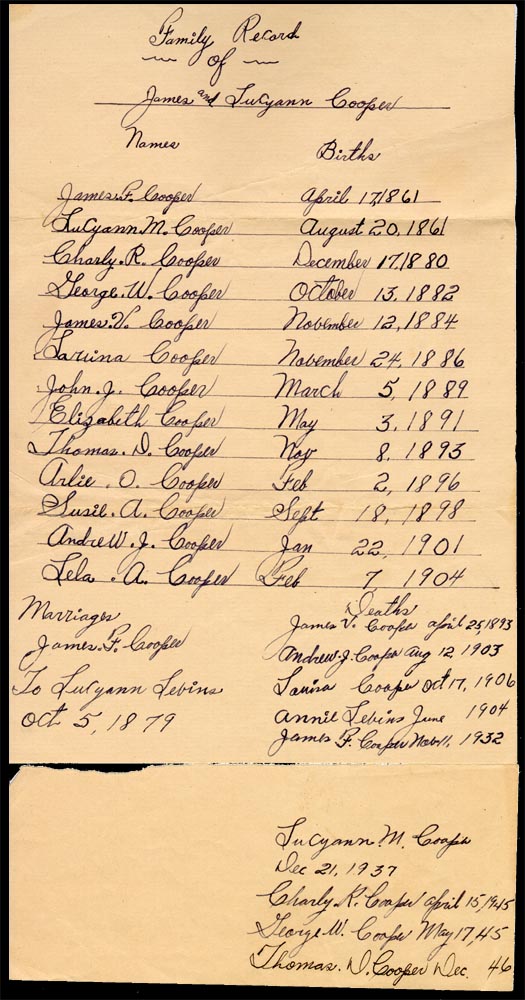 Family Record
of
James and Lucyann Cooper
Names Births
James.F. Cooper April 17,1861
Lucyann.M. Cooper August 20, 1861
Charly.R. Cooper December 17,1880
George.W. Cooper October 13, 1882
James.V. Cooper November 12, 1884
Laruina Cooper November 24, 1886
John.J. Cooper March 5, 1889
Elizabeth Cooper May 3, 1891
Thomas.D. Cooper Nov 8, 1893
Arlie.O. Cooper Feb 2, 1896
Susie.A. Cooper Sept 18, 1898
Andrew.J. Cooper Jan 22, 1901
Lela.A. Cooper Feb 7 1904
Marriages
James.F. Cooper
To Lucyann Levins
Oct 5, 1879
Deaths
James V. Cooper April 25,1893
Andrew.J. Cooper Aug 12, 1903
Lauina Cooper Oct 17, 1906
Annie Levins June 1904
James F. Cooper Nov 11, 1932
Lucyann.M. Cooper
Dec 21, 1937
Charly.R. Cooper April 15,1945
George W. Cooper May 17,45
Thomas.D. Cooper Dec. 46